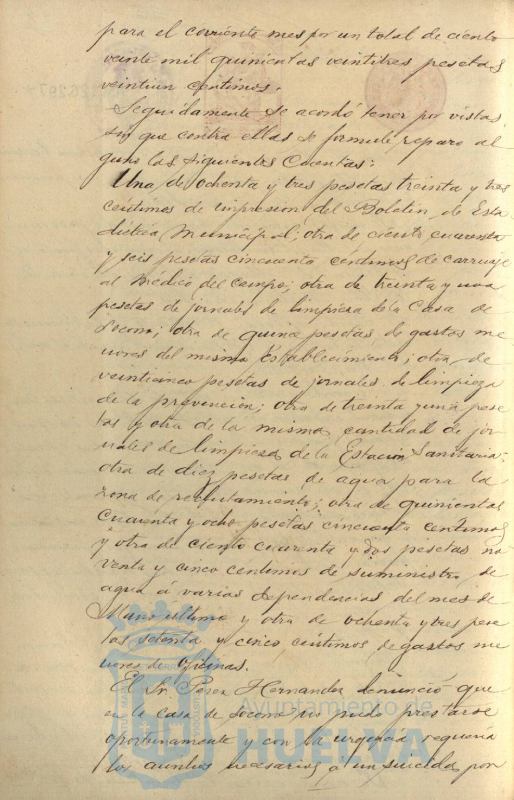 para el corriente mes por un total de ciento
veinte mil quinientas veintitres pesetas
veintiun centimos.
Seguidamente se acordó tener por vistas
sin que contra ellas se formule reparo al
guno las siguientes Cuentas:
Una de ochenta y tres pesetas treinta y tres
centimos de impresion del Boletin de Esta
distica Municipal; otra de ciento cuarenta
y seis pesetas cincuenta centimos de carruaje
al Médico del campo; otra de treinta y una
pesetas de jornales de limpieza de la Casa de
Socorro; otra de quince pesetas de gastos me
nores del mismo Establecimiento; otra de
veinticinco pesetas de jornales de limpieza
de la prevención; otra de treinta y una pese
tas y otra de la misma cantidad de jor
nales de limpieza de la Estación Sanitaria;
otra de diez pesetas de agua para la
zona de reclutamiento; otra de quinientas
cuarenta y ocho pesetas cincuenta centimos
y otra de ciento cuarenta y dos pesetas no
venta y cinco centimos de suministro de
agua á varias dependencias del mes de
último y otra de ochenta y tres pese
tas setenta y cinco céntimos de gastos me
nores de oficinas.
El Sr. Perez Hernandez denunció que
en la casa de Socorro no pudo prestarse
oportunamente y con la urgencia requeria
los auxilios necesarios á un suicida por
Ayuntamiento de
HUELVA